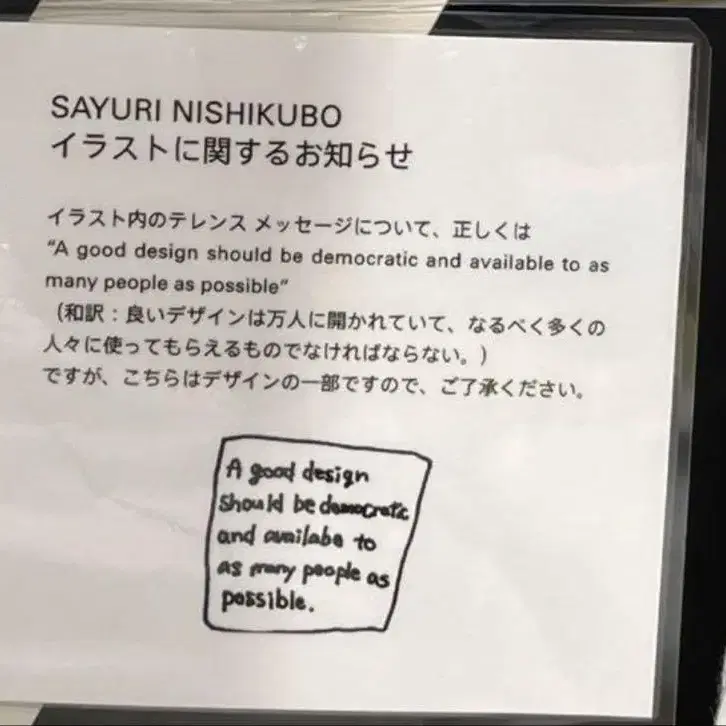 SAYURI NISHIKUBO
イラストに関するお知らせ
イラスト内のテレンス メッセージについて、正しくは
“A good design should be democratic and available to as
many people as possible”
（和訳：良いデザインは万人に開かれていて、なるべく多くの
人々に使ってもらえるものでなければならない。）
ですが、こちらはデザインの一部ですので、ご了承ください。
A good design
should be democratic
and availabe to
as many people as
possible.